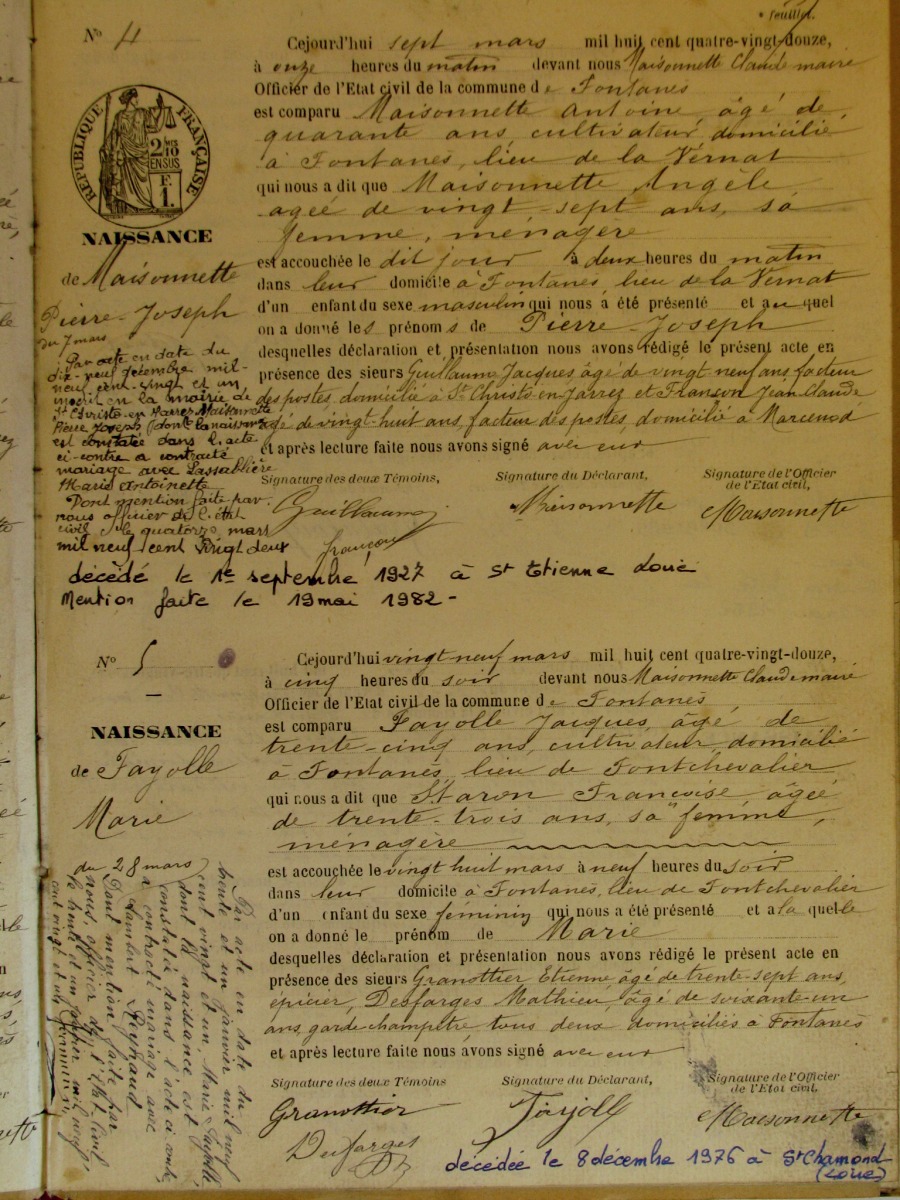 feuillet.
N° 4
Cejourd'hui sept mars mil huit cent quatre-vingt-douze,
à onze heures du matin devant nous Maisonnette Claude maire
Officier de l'Etat civil de la commune de Fontanès
est comparu Maisonnette Antoine, âgé de
quarante ans, cultivateur, domicilié
à Fontanès, lieu de la Vernat
qui nous a dit que Maisonnette Angèle
ageé de vingt-sept ans, sa
femme, ménagère
est accouchée le dit jour à deux heures du matin
dans leur domicile à Fontanès, lieu de la Vernat
d'un enfant du sexe masculin qui nous a été présenté et auquel
on a donné les prénoms de Pierre-Joseph
desquelles déclaration et présentation nous avons rédigé le présent acte en
présence des sieurs Guillaume Jacques, âgé de vingt-neuf ans facteur
des postes, domicilié à St Christo-en-Jarrez et Françon Jean Claude
âgé de vingt-huit ans, facteur des postes, domicilié à Marcenod
et après lecture faite nous avons signé avec eux
Signature des deux Témoins,
Signature du Déclarant,
Signature de l'Officier
de l'Etat civil,
Guillaume
Françon
Maisonnette
Maisonnette
RÉPUBLIQUE FRANÇAISE
2/10
EN SUS
F.
1.
NAISSANCE
de Maisonnette
Pierre-Joseph
du 7 mars
Par acte en date du
dix-neuf décembre mil-
neuf cent-vingt et un
inscrit en la mairie de
St Christo-en-Jarrez Maisonnette
Pierre Joseph (dont la naissance
est constatée dans l'acte
ci-contre a contracté
mariage avec Lassablière
Marie Antoinette
Dont mention faite par
nous officier de l'état
civil le quatorze mars
mil neuf cent vingt deux
décédé le 1er septembre 1927 à St Etienne Loire
Mention faite le 19 mai 1982-
N° 5
Cejourd'hui vingt neuf mars mil huit cent quatre-vingt-douze,
à cinq heures du soir devant nous Maisonnette Claude maire
Officier de l'Etat civil de la commune de Fontanès
est comparu Fayolle Jacques, âgé de
trente-cinq ans, cultivateur, domicilié
à Fontanès, lieu de Fontchevalier
qui nous a dit que Staron Françoise, âgée
de trente-trois ans, sa femme,
ménagère
est accouchée le vingt huit mars à neuf heures du soir
dans leur domicile à Fontanès, lieu de Fontchevalier
d'un enfant du sexe féminin qui nous a été présenté et à la quelle
on a donné le prénom de Marie
desquelles déclaration et présentation nous avons rédigé le présent acte en
présence des sieurs Granottier Etienne, âgé de trente-sept ans,
épicier, Desfarges Mathieu, âgé de soixante-un
ans, garde-champêtre, tous deux domiciliés à Fontanès
et après lecture faite nous avons signé avec eux
Signature des deux Témoins
Signature du Déclarant,
Signature de l'Officier
de l'Etat civil,
Granottier
Desfarges
Fayolle
Maisonnette
décédée le 8 décembre 1976 à St Chamond
(Loire)
NAISSANCE
de Fayolle
Marie
du 28 mars
Par acte en date du
trente et un janvier mil neuf
cent vingt et un, Marie Fayolle,
dont la naissance est
constatée dans l'acte ci contre
a contracté mariage avec
Lambert
Dont mention faite par
nous, officier de l'Etat civil
le mil neuf
cent vingt et un